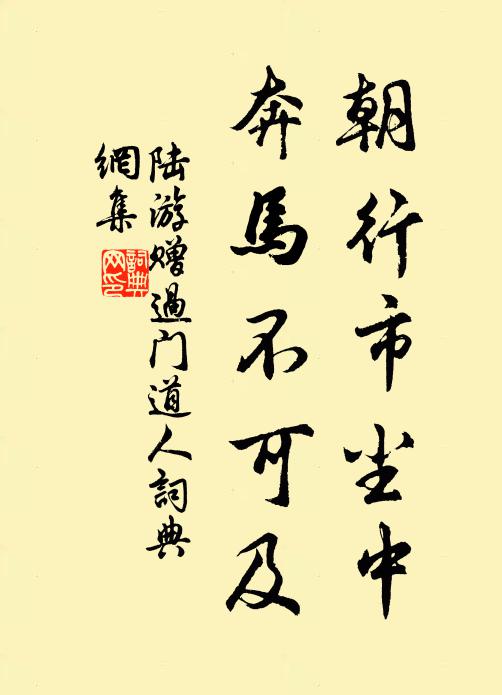 朝行市尘中
奔馬不可及
陆游赠過门道人詞典
網集
詞典网印